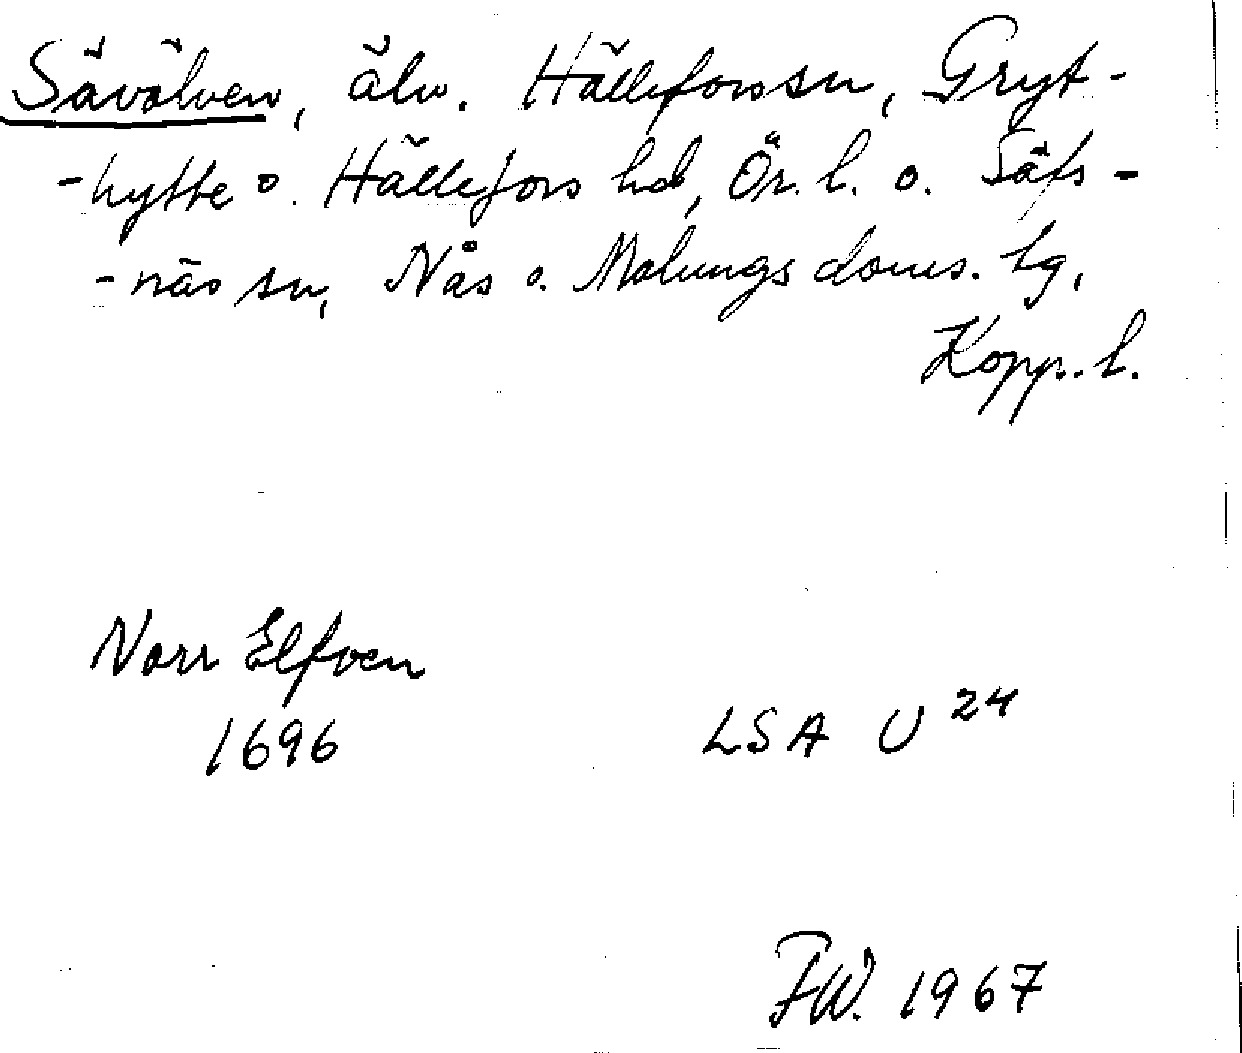 Sävälven, älv. Hällefors sn, Gryt-
-hytte o. Hällefors hd, Ör. l. o. Säfs-
-näs sn, Nås o. Malungs doms. lg,
Kopp. l.
Norr Elfven
1696
LSA U 24
FW. 1967